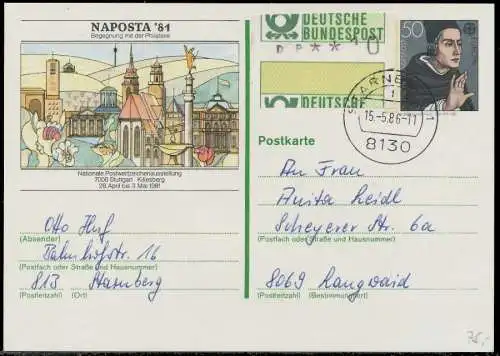 NAPOSTA '81
Begegnung mit der Philatelie
Nationale Postwertzeichenausstellung
7000 Stuttgart - Killesberg
28. April bis 3. Mai 1981
DEUTSCHE
BUNDESPOST
DBP
DEUTSCHE
50
STARNBERG 1
15.-5.86-11
8130
Postkarte
Otto Huf
(Absender)
Bahnhofstr. 16
(Postfach oder Straße und Hausnummer)
813 Starnberg
(Postleitzahl) (Ort)
An Frau
Anita Heidl
Scheyerer Str. 6a
(Postfach oder Straße und Hausnummer)
8069 Rangwaid
(Postleitzahl) (Bestimmungsort)
75,-